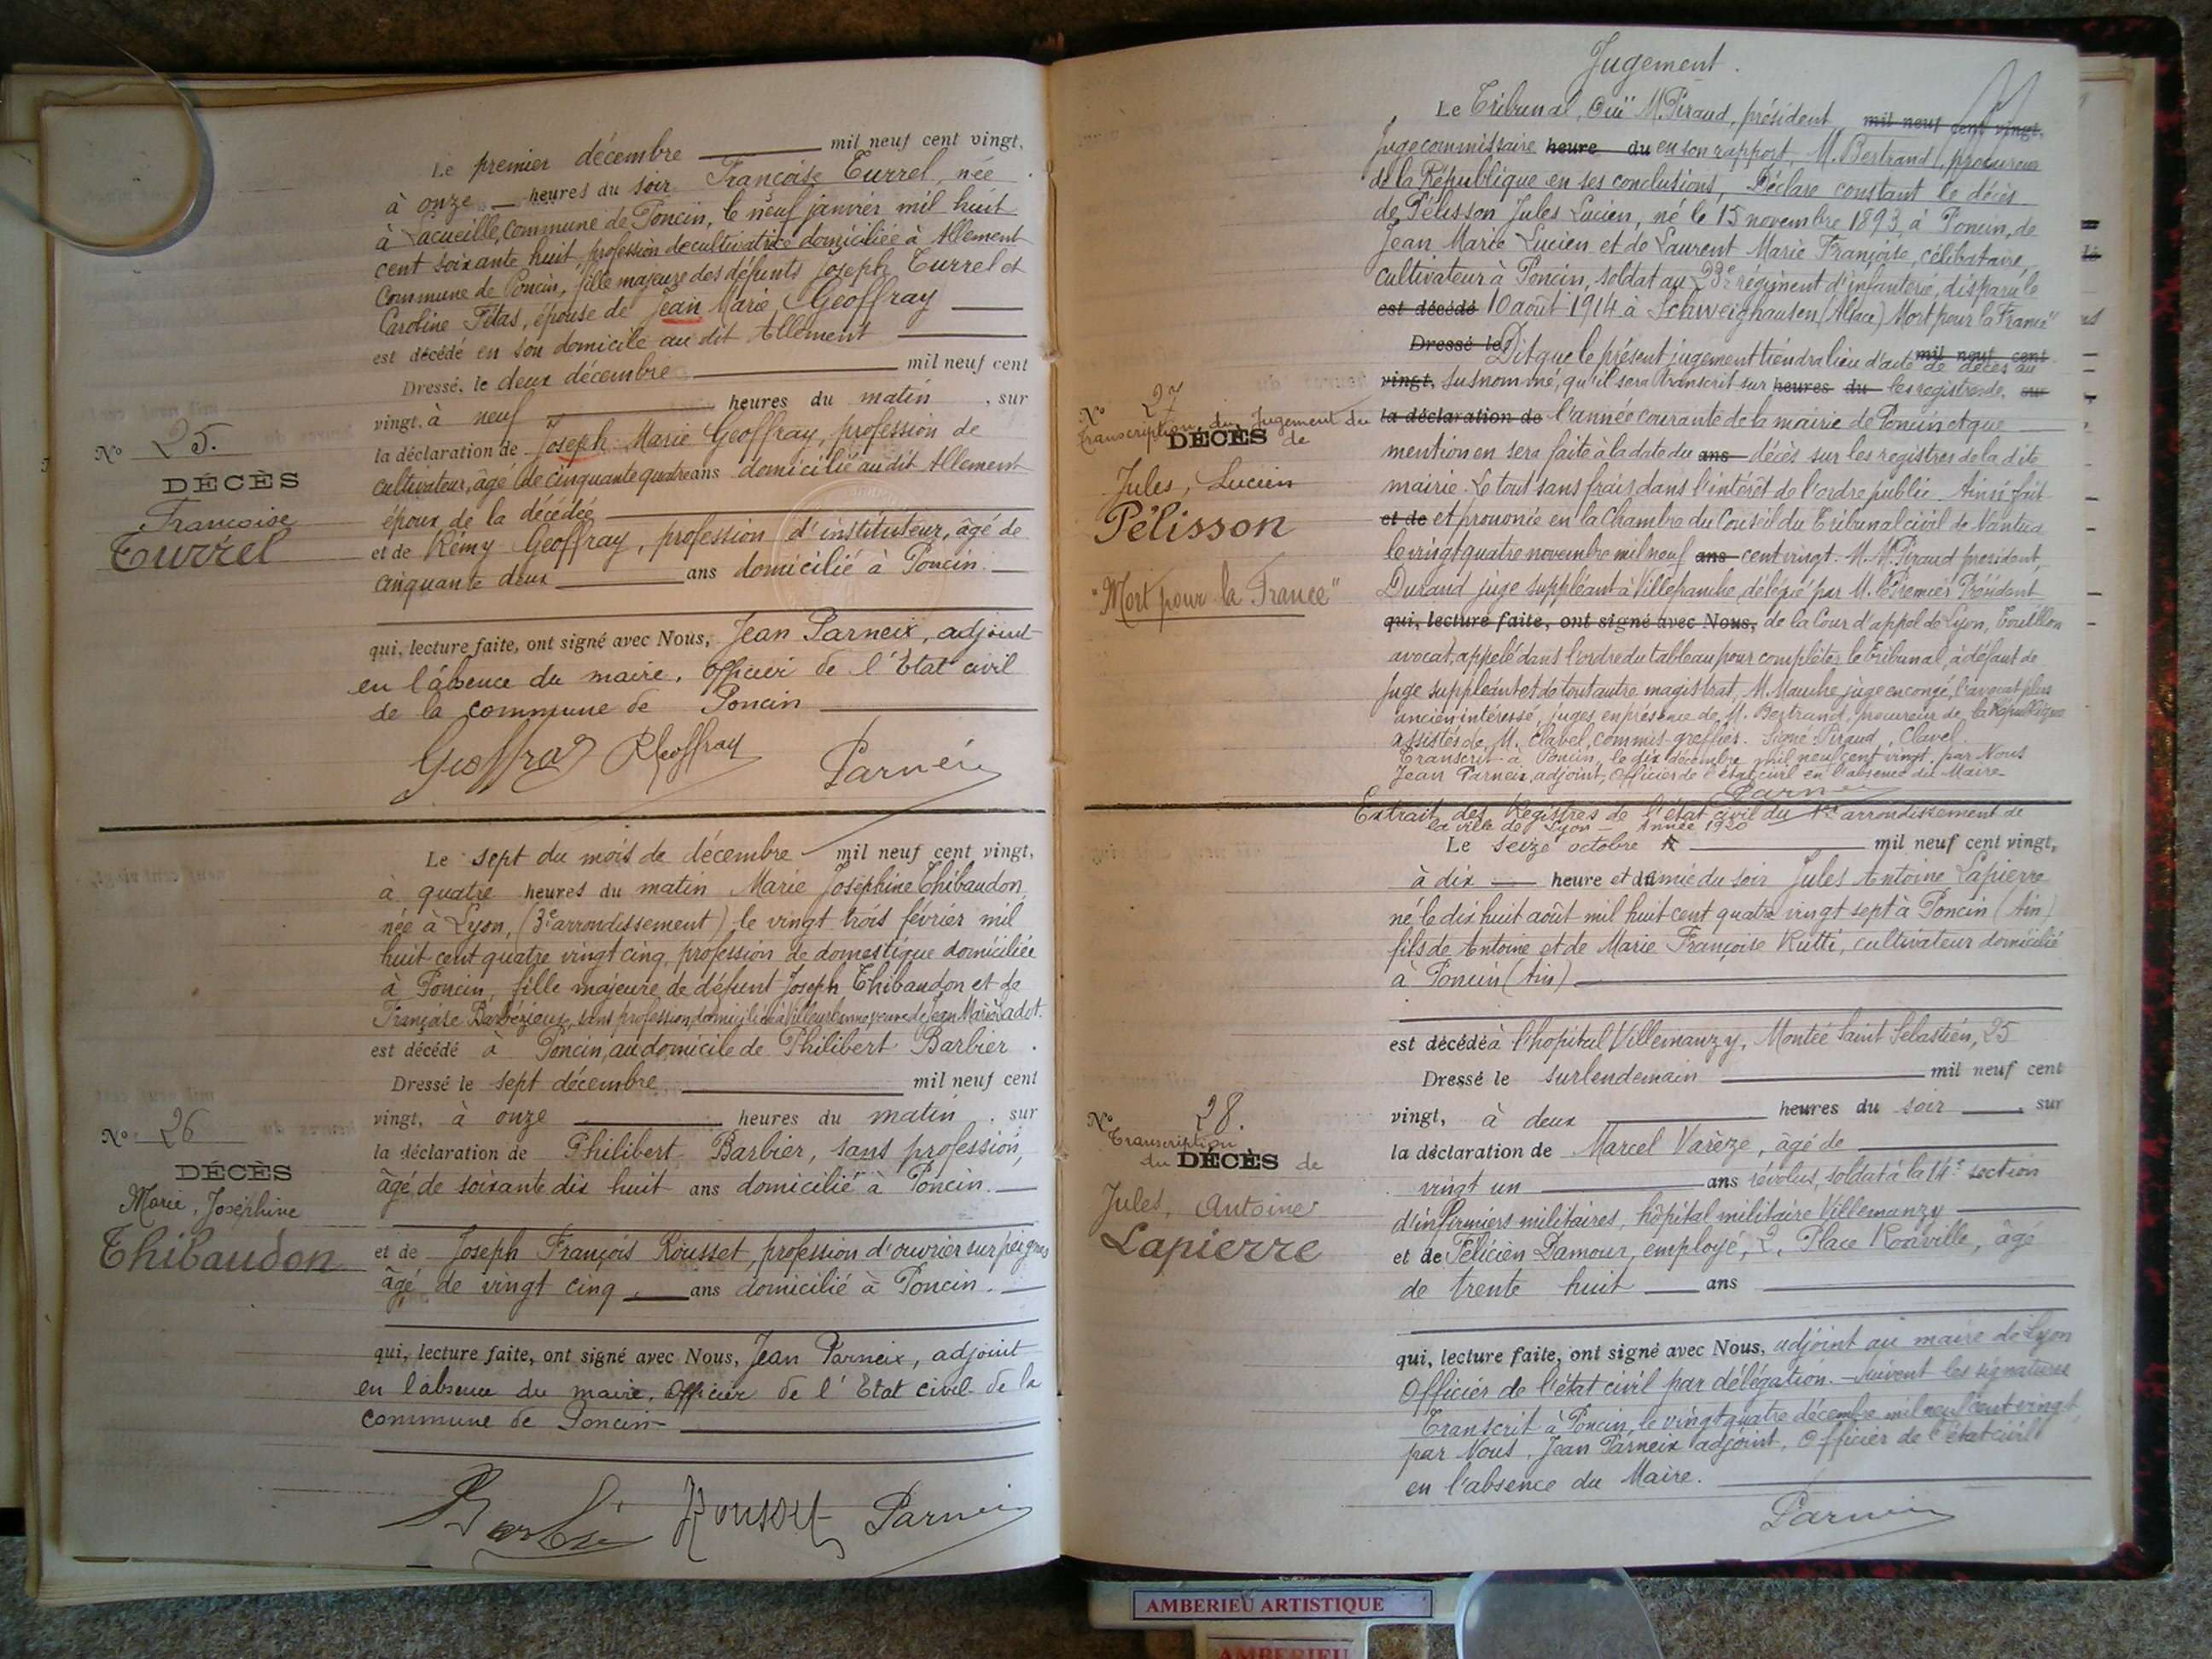 Le premier décembre mil neuf cent vingt,
à onze heures du soir Françoise Turrel, née
à Lacueille, commune de Poncin, le neuf janvier mil huit
cent soixante huit, profession de cultivatrice domiciliée à Allement
Commune de Poncin, fille majeure des défunts Joseph Turrel et
Caroline Fitas, épouse de Jean Marie Geoffray
est décédé en son domicile au dit Allement
Dressé, le deux décembre mil neuf cent
vingt, à neuf heures du matin, sur
la déclaration de Joseph Marie Geoffray, profession de
cultivateur, âgé de cinquante quatre ans domicilié au dit Allement
époux de la décédée
et de Rémy Geoffray, profession d'instituteur, âgé de
cinquante deux ans domicilié à Poncin.
qui, lecture faite, ont signé avec Nous, Jean Parneix, adjoint
en l'absence du maire, Officier de l'Etat civil
de la commune de Poncin
Geoffray RGeoffray Parneix
N° 25.
DÉCÈS
Françoise
Turrel
Le sept du mois de décembre mil neuf cent vingt,
à quatre heures du matin Marie Joséphine Thibaudon
née à Lyon, (3e arrondissement) le vingt trois février mil
huit cent quatre vingt cinq, profession de domestique domiciliée
à Poncin, fille majeure de défunt Joseph Thibaudon et de
Françoise Barbézieux, sans profession, domiciliée à Villeurbanne, veuve de Jean Marie Sadot.
est décédé à Poncin, au domicile de Philibert Barbier.
Dressé le sept décembre mil neuf cent
vingt, à onze heures du matin, sur
la déclaration de Philibert Barbier, sans profession,
âgé de soixante dix huit ans domicilié à Poncin.
et de Joseph François Rousset, profession d'ouvrier sur peignes
âgé de vingt cinq, ans domicilié à Poncin.
qui, lecture faite, ont signé avec Nous, Jean Parneix, adjoint
en l'absence du maire, Officier de l'Etat civil de la
commune de Poncin
Barbier Rousset Parneix
N° 26
DÉCÈS
Marie, Joséphine
Thibaudon
Jugement.
Le Tribunal, Ouï M. Piraud, président mil neuf cent vingt,
Juge commissaire heure du en son rapport, M. Bertrand, procureur
de la République en ses conclusions, Déclare constant le décès
de Pélisson Jules Lucien, né le 15 novembre 1893, à Poncin, de
Jean Marie Lucien et de Laurent Marie Françoise, célibataire,
cultivateur à Poncin, soldat au 23e régiment d'infanterie, disparu le
est décédé 10 août 1914 à Schweighausen (Alsace) Mort pour la France"
Dressé le Dit que le présent jugement tiendra lieu d'acte mil neuf cent de décès au
vingt, susnommé, qu'il sera transcrit sur heures du les registres de, sur
la déclaration de l'année courante de la mairie de Poncin et que
mention en sera faite à la date du ans décès sur les registres de la dite
mairie. Le tout sans frais dans l'intérêt de l'ordre public. Ainsi fait
et de et prononcé en la Chambre du Conseil du Tribunal civil de Nantua
le vingt quatre novembre mil neuf ans cent vingt. M.M. Piraud président,
Durand juge suppléant à Villefranche, délégué par M. le Premier Président
qui, lecture faite, ont signé avec Nous, de la Cour d'appel de Lyon, Touillon
avocat, appelé dans l'ordre du tableau pour compléter le tribunal, à défaut de
Juge suppléant et de tout autre magistrat, M. Mauhe juge en congé, l'avocat plus
ancien intéressé, juges, en présence de M. Bertrand, procureur de la République
assistés de M. Clavel, commis-greffier. Signé: Piraud, Clavel.
Transcrit à Poncin, le dix décembre mil neuf cent vingt par Nous
Jean Parneix, adjoint, Officier de l'état civil en l'absence du Maire
Parneix
N° 27
Transcription du Jugement du
DÉCÈS de
Jules, Lucien
Pélisson
"Mort pour la France"
Extrait des Registres de l'état civil du 1er arrondissement de
la ville de Lyon – Année 1920
Le seize octobre mil neuf cent vingt,
à dix heure et demie du soir Jules Antoine Lapierre
né le dix huit août mil huit cent quatre vingt sept à Poncin (Ain)
fils de Antoine et de Marie Françoise Rutti, cultivateur domicilié
à Poncin (Ain)
est décédé à l'hôpital Villemanzy, Montée Saint Sébastien, 25
Dressé le surlendemain mil neuf cent
vingt, à deux heures du soir, sur
la déclaration de Marcel Varèze, âgé de
vingt un ans révolus, soldat à la 14e section
d'infirmiers militaires, hôpital militaire Villemanzy
et de Félicien Damour, employé, 2, Place Rouville, âgé
de trente huit ans
qui, lecture faite, ont signé avec Nous, adjoint au maire de Lyon
Officier de l'état civil par délégation. – Suivent les signatures
Transcrit à Poncin, le vingt quatre décembre mil neuf cent vingt
par Nous, Jean Parneix adjoint, Officier de l'état civil
en l'absence du Maire.
Parneix
N° 28.
Transcription
du DÉCÈS de
Jules, Antoine
Lapierre
AMBERIEU ARTISTIQUE
AMBERIEU